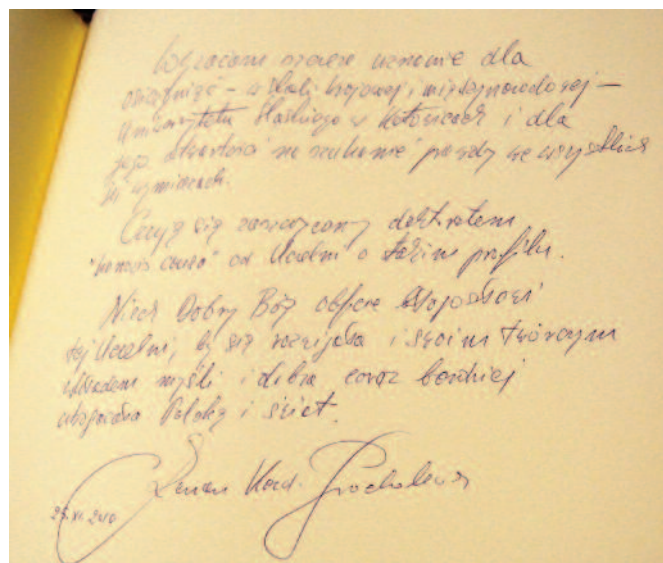 Wyrażam szczere uznanie dla
osiągnięć – w skali krajowej i międzynarodowej –
Uniwersytetu Śląskiego w Katowicach i dla
jego otwartości na szukanie prawdy we wszystkich
jej wymiarach.
Czuję się zaszczycony doktoratem
"honoris causa" od Uczelni o takim profilu.
Niech Dobry Bóg obficie błogosławi
tej Uczelni, by się rozwijała i swoim twórczym
wkładem myśli i dobra coraz bardziej
ubogacała Polskę i świat.
Zenon Kard. Grocholewski
2010